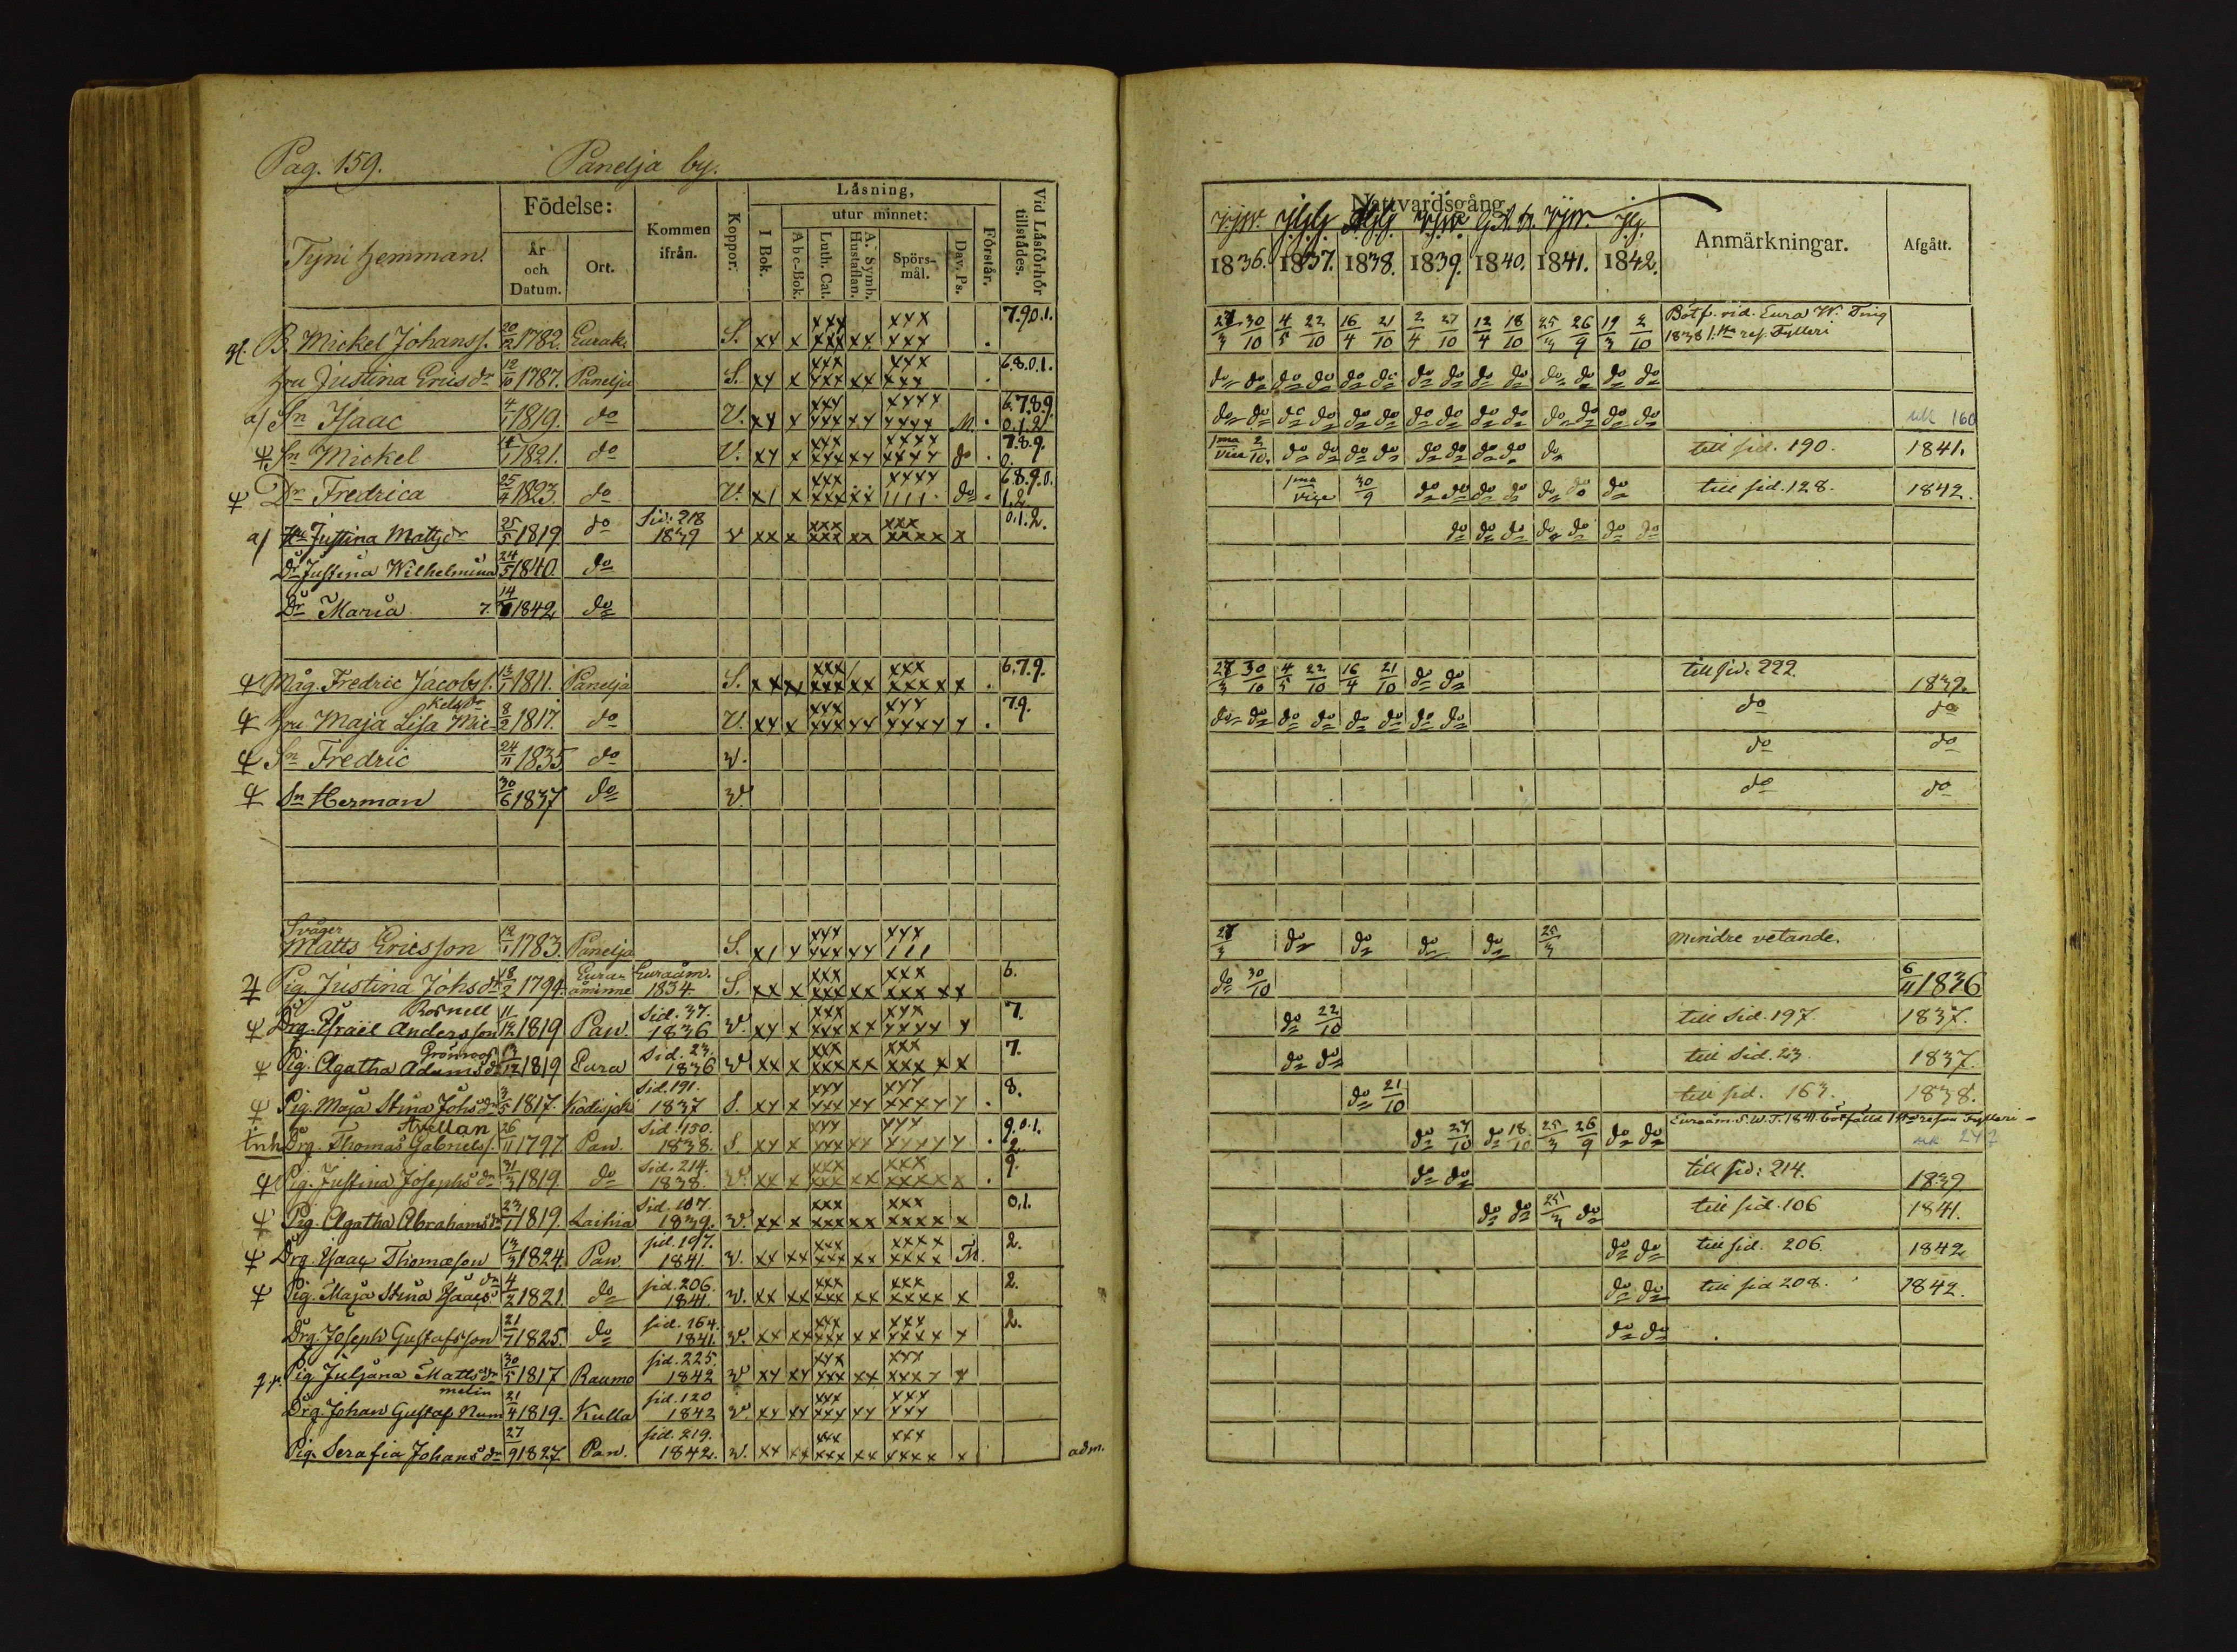 Pag. 159. Panelja by.
Tyni hemman. Födelse: År och Datum. Ort. Kommen ifrån. Koppor. Läsning, I Bok. utur minnet: Abc-Bok. Luth. Cat. A. Symb. Hustaflan. Spörsmål. Dav. Ps. Förstår. Vid Läsförhör tillstädes.
Nattvardsgång
1836. 1837. 1838. 1839. 1840. 1841. 1842. Anmärkningar. Afgått.
B. Mickel Johanss. 20/2 1782. Eurak. S. xx x xxx xxx xx xxx xxx . 7.9.0.1. 27/3 30/10 4/5 22/10 16/4 21/10 2/4 27/10 12/4 18/10 25/3 26/9 19/3 2/10 Botf. vid Eura W. Ting 1838 1:sta res. Fylleri
hru Justina Ericsdr 12/10 1787. Panelja S. xx x xxx xxx xx xxx xxx . 6.8.0.1. do do do do do do do do do do do do do do
a) Sn Isaac 4/1 1819. do V. xx x xxx xxx xx xxxx xxxx M. . 6.7.8.9. 0.1.2. do do do do do do do do do do do do do do 160
Sn Mickel 1821. do V. xx x xxx xxx xx xxxx xxxx do . 7.8.9. 0. 1ma vice 2/10. do do do do do do do do do till sid. 190. 1841.
Dr Fredrica 25/4 1823. do V. x x xxx xxx xx xxxx do . 6.8.9.0. 1.2. 1ma vice 30/9 do do do do do do do till sid. 128. 1842.
a) Hu Justina Mattsdr 25/5 1819 do Sid. 218 1839 v xx x xxx xxx xx xxx xxxx x 0.1.2. do do do do do do do
Dr Justina Wilhelmina 24/5 1840. do
Dr Maria 7. 14/ 1842 do
Måg. Fredric Jacobss. 13/1 1811. Panelja S. xx xx xxx xxx xx xxx xxxx x . 6.7.9. 27/3 30/10 4/5 22/10 16/4 21/10 do do till sid. 222. 1839.
hru Maja Lisa Mickelsdr 8/2 1817. do V. xx x xxx xxx xx xxx xxxx x . 7.9. do do do do do do do do do do
Sn Fredric 24/11 1835 do v. do do
Sn Herman 30/6 1837 do v. do do
Svåger
Matts Ericsson 12/1 1783. Panelja S. x x xxx xxx xx xxx 27/3 do do do do 25/3 Mindre vetande.
Pig. Justina Johsdr 18/2 1794. Euraåminne Euraåm. 1834. S. xx x xxx xxx xx xxx xxx xx 6. do 30/10 6/11 1836
Rosnell
Drg. Israël Andersson 11/12 1819 Pan. Sid. 37. 1836 v. xx x xxx xxx xx xxx xxxx x 7. do 22/10 till Sid. 197. 1837.
Grönroos
Pig. Agatha Adamsdr /12 1819 Eura Sid. 23. 1836 v xx x xxx xxx xx xxx xxxx x 7. do do till Sid. 23. 1837.
Pig. Maja Stina Johsdr 3/5 1817. Kodisjoki Sid. 191. 1837 S. xx x xxx xxx xx xxx xxxx x . 8. do 21/10 till sid. 163. 1838.
Inh Drg. Thomas Gabrielss. 26/11 1797. Pan. Sid. 150. 1838. S xx x xxx xxx xx xxx xxxx x . 9.0.1. 2. do 27/10 do 18/10 25/3 26/9 do do Euraåm. S.W.T. 1841 botfälld 1sta resan Fylleri 247
Pig. Justina Josephsdr 31/3 1819. do Sid. 214. 1838. v. xx x xxx xxx xx xxx xxxx x . 9. do do till sid: 214. 1839
Pig. Agatha Abrahamsdr 23/1 1819. Laihia Sid. 107. 1839. v. xx x xxx xxx xx xxx xxxx x 0.1. do do 25/3 do till sid. 106 1841.
Drg. Isaac Thomason 13/3 1824. Pan. sid. 197. 1841. v. xx xx xxx xxx xx xxxx xxxx M. 2. do do till sid. 206. 1842
Pig. Maja Stina Isaacsdr 4/2 1821. do sid. 206 1841. v. xx xx xxx xxx xx xxx xxxx x 2. do do till sid 208. 1842.
Drg. Joseph Gustafsson 21/7 1825. do sid. 164. 1841. v. xx xx xxx xxx xx xxx xxxx x 2. do do
Pig. Juljana Mattsdr 30/5 1817 Raumo sid. 225. 1842 v xx xx xxx xxx xx xxx xxxx x
Drg. Johan Gustaf Nummelin 21/4 1819. Kulla sid. 120 1842 v. xx xx xxx xxx xx xxx xxx
Pig. Serafia Johansdr 27/9 1827. Pan. sid. 219. 1842. v. xx xx xxx xxx xx xxx xxxx x adm.